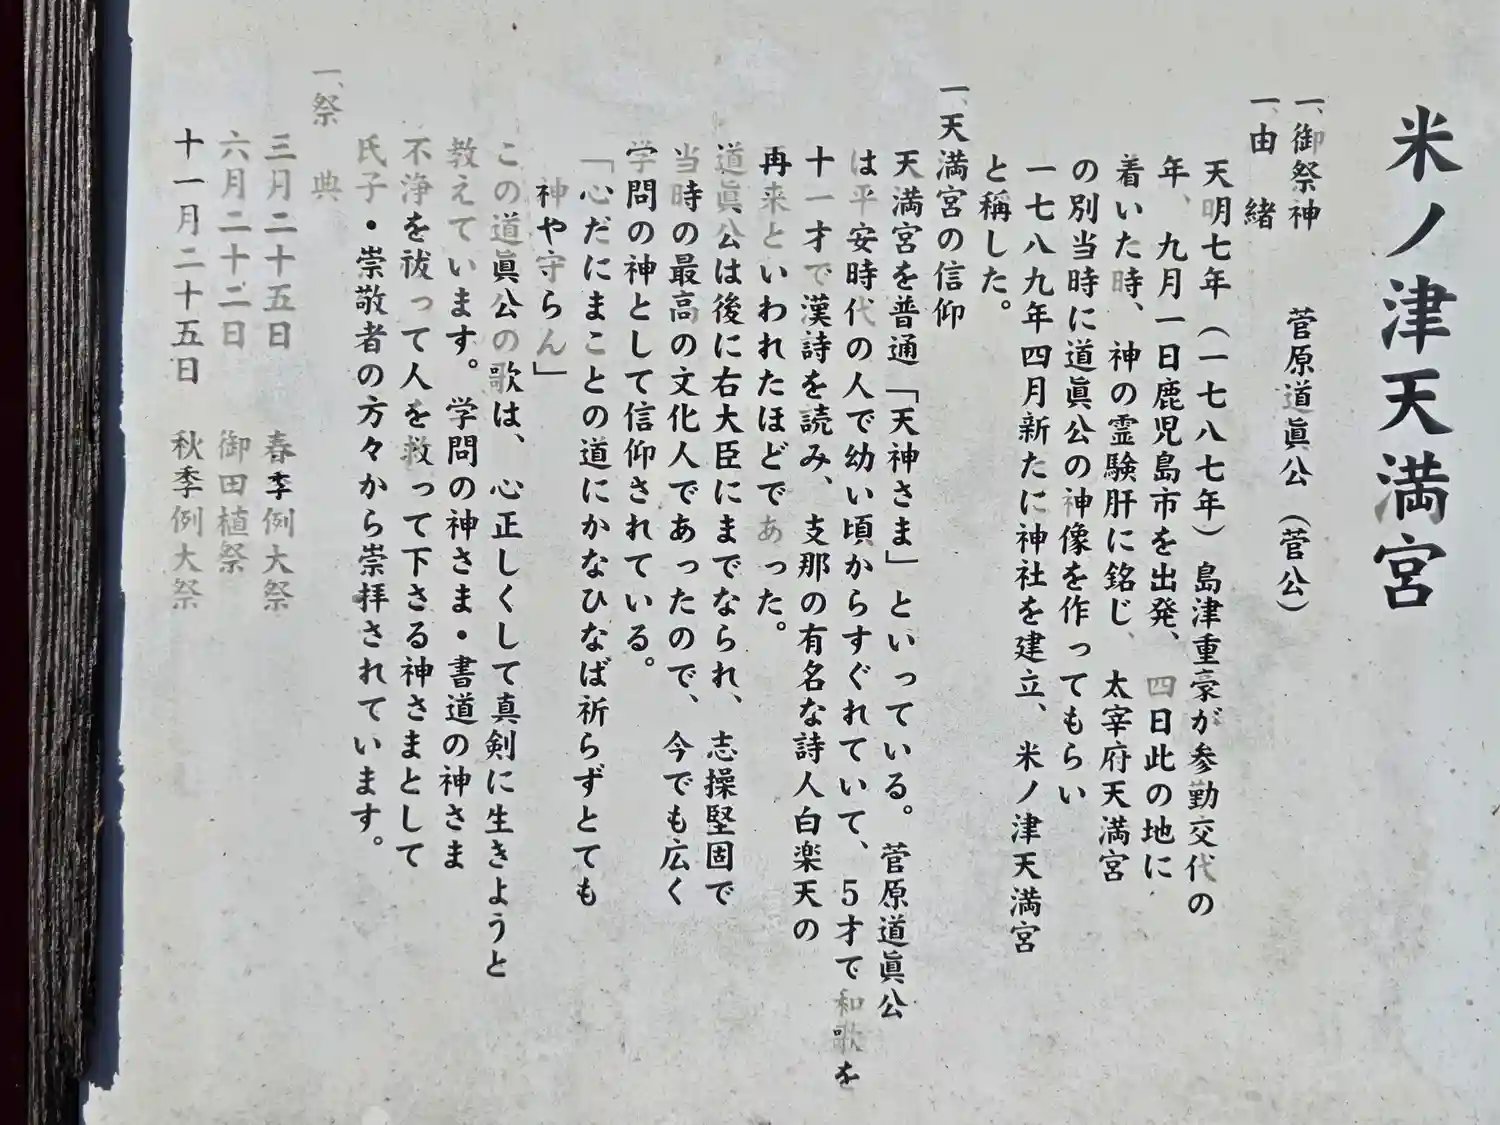 米ノ津天満宮
一、御祭神　菅原道眞公（菅公）
一、由　緒
天明七年（一七八七年）島津重豪が参勤交代の
年、九月一日鹿児島市を出発、四日此の地に
着いた時、神の霊験肝に銘じ、太宰府天満宮
の別当時に道眞公の神像を作ってもらい
一七八九年四月新たに神社を建立、米ノ津天満宮
と稱した。
一、天満宮の信仰
天満宮を普通「天神さま」といっている。菅原道眞公
は平安時代の人で幼い頃からすぐれていて、5才で和歌を
十一才で漢詩を読み、支那の有名な詩人白楽天の
再来といわれたほどであった。
道眞公は後に右大臣にまでなられ、志操堅固で
当時の最高の文化人であったので、今でも広く
学問の神として信仰されている。
「心だにまことの道にかなひなば祈らずとても
神や守らん」
この道眞公の歌は、心正しくして真剣に生きようと
教えています。学問の神さま・書道の神さま
不浄を祓って人を救って下さる神さまとして
氏子・崇敬者の方々から崇拝されています。
一、祭　典
三月二十五日　春季例大祭
六月二十二日　御田植祭
十一月二十五日　秋季例大祭